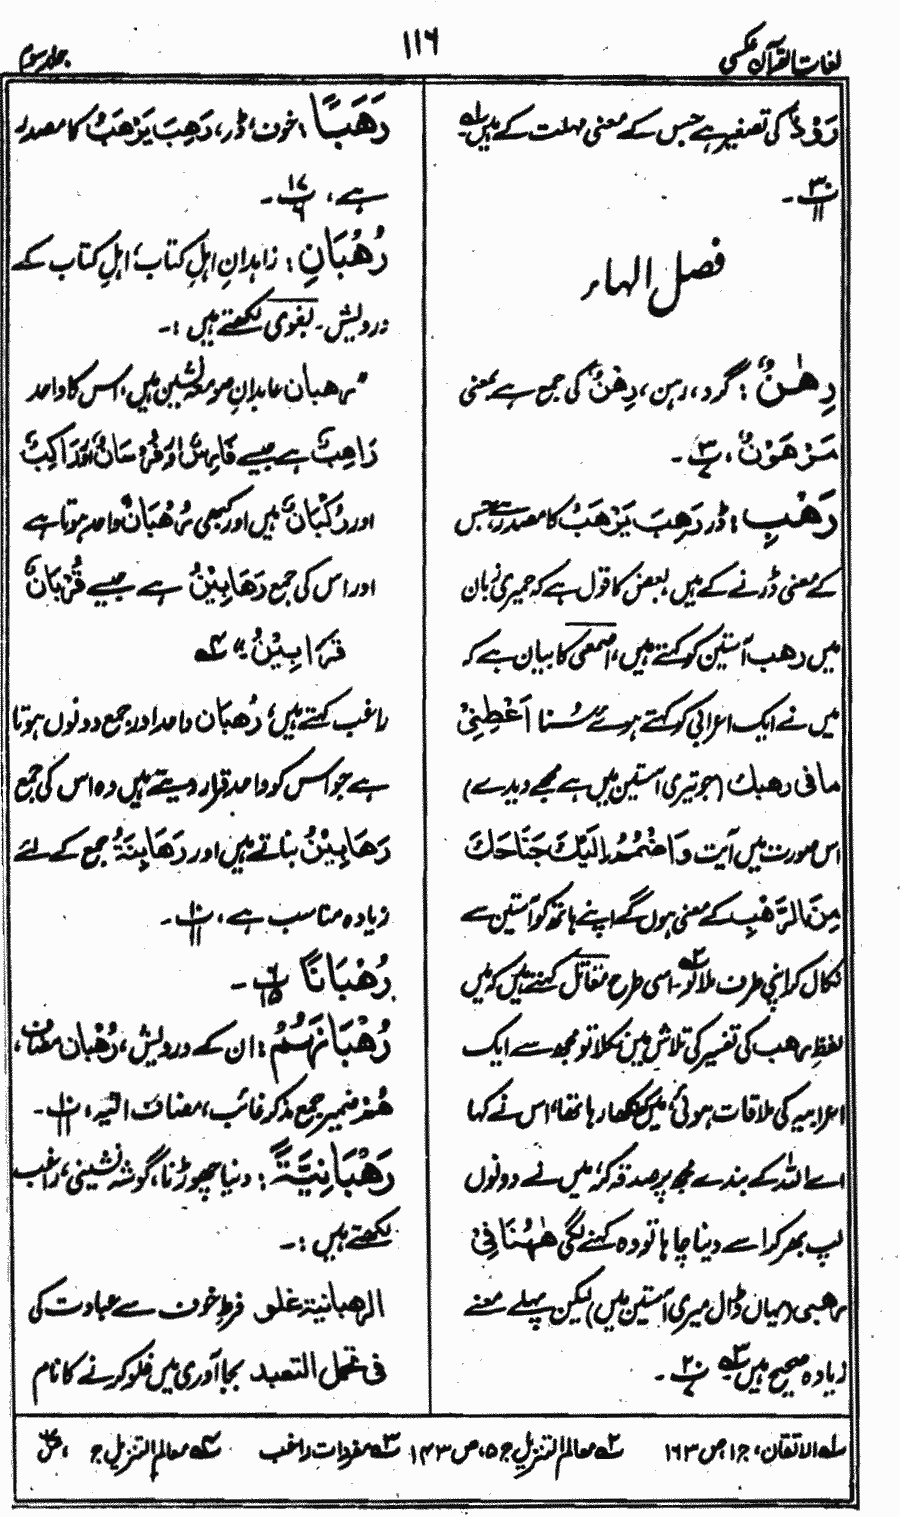 لغات القرآن عکسی
۱۱۶
جلد سوم
رَوْدٌ کی تصغیر ہے جس کے معنی مہلت کے ہیں لہ
۳۰ ۱۱ ۔
فصل الہاء
رِهٰنٌ : گرد، رہن، رِهْنٌ کی جمع ہے بمعنی
مَرْهُوْنٌ، ۳ ۷ ۔
رَهْبِ : ڈر رَهِبَ يَرْهَبُ کا مصدر ہے، جس
کے معنی ڈرنے کے ہیں، بعض کا قول ہے کہ حمیری زبان
میں رهب آستین کو کہتے ہیں، اصمعی کا بیان ہے کہ
میں نے ایک اعرابی کو کہتے ہوئے سُنا اَعْطِنِیْ
مافی رهبك (جو تیری آستین میں ہے مجھے دیدے)
اس صورت میں آیت وَاضْمُمْ اِلَيْكَ جَنَاحَكَ
مِنَ الرَّهْبِ کے معنی ہوں گے اپنے ہاتھ کو آستین سے
نکال کر اپنی طرف ملا لو۲ھ۔ اسی طرح مقاتل کہتے ہیں کہ میں
لفظ رهب کی تفسیر کی تلاش میں نکلا تو مجھ سے ایک
اعرابیہ کی ملاقات ہوئی، میں کھا رہا تھا، اس نے کہا
اے اللہ کے بندے مجھ پر صدقہ کر، میں نے دونوں
لپ بھر کر اسے دینا چاہا تو وہ کہنے لگی هٰهُنَا فِیْ
رهبی (یہاں ڈال میری آستین میں) لیکن پہلے معنے
زیادہ صحیح ہیں ۳ھ ۲۰ ۷ ۔
رَهَبًا : خوف، ڈر، رَهِبَ يَرْهَبُ کا مصدر
ہے، ۱۷ ۶ ۔
رُهْبَانِ : زاہدانِ اہلِ کتاب، اہلِ کتاب کے
درویش۔ بغوی لکھتے ہیں :۔
"رهبان عابدانِ صومعہ نشین ہیں، اس کا واحد
رَاهِبٌ ہے جیسے فَارِسٌ اور فُرْسَانٌ اور رَاكِبٌ
اور رُكْبَانٌ ہیں اور کبھی رُهْبَانٌ واحد ہوتا ہے
اور اس کی جمع رَهَابِيْنُ ہے جیسے قُرْبَانٌ
قَرَابِيْنُ" ۴ھ
راغب کہتے ہیں، رُهبَان واحد اور جمع دونوں ہوتا
ہے جو اس کو واحد قرار دیتے ہیں وہ اس کی جمع
رَهَابِيْنُ بناتے ہیں اور رَهَابِنَةٌ جمع کے لئے
زیادہ مناسب ہے، ۱۰ ۱۱ ۔
رُهْبَانًا ۶ ۱۵ ۔
رُهْبَانَهُمْ : ان کے درویش، رُهْبان مضاف،
هُمْ ضمیر جمع مذکر غائب، مضاف الیہ، ۱۰ ۱۱ ۔
رَهْبَانِيَّةً : دنیا چھوڑنا، گوشہ نشینی، راغب
لکھتے ہیں :۔
الرهبانية غلو فرطِ خوف سے عبادت کی
فی تحمل التعبد بجا آوری میں غلو کرنے کا نام
لہ الاتقان، ج۱، ص ۱۶۳ ۲ھ معالم التنزیل ج ۵، ص ۱۴۳ ۳ھ مفردات راغب ۴ھ معالم التنزیل ج ، ص